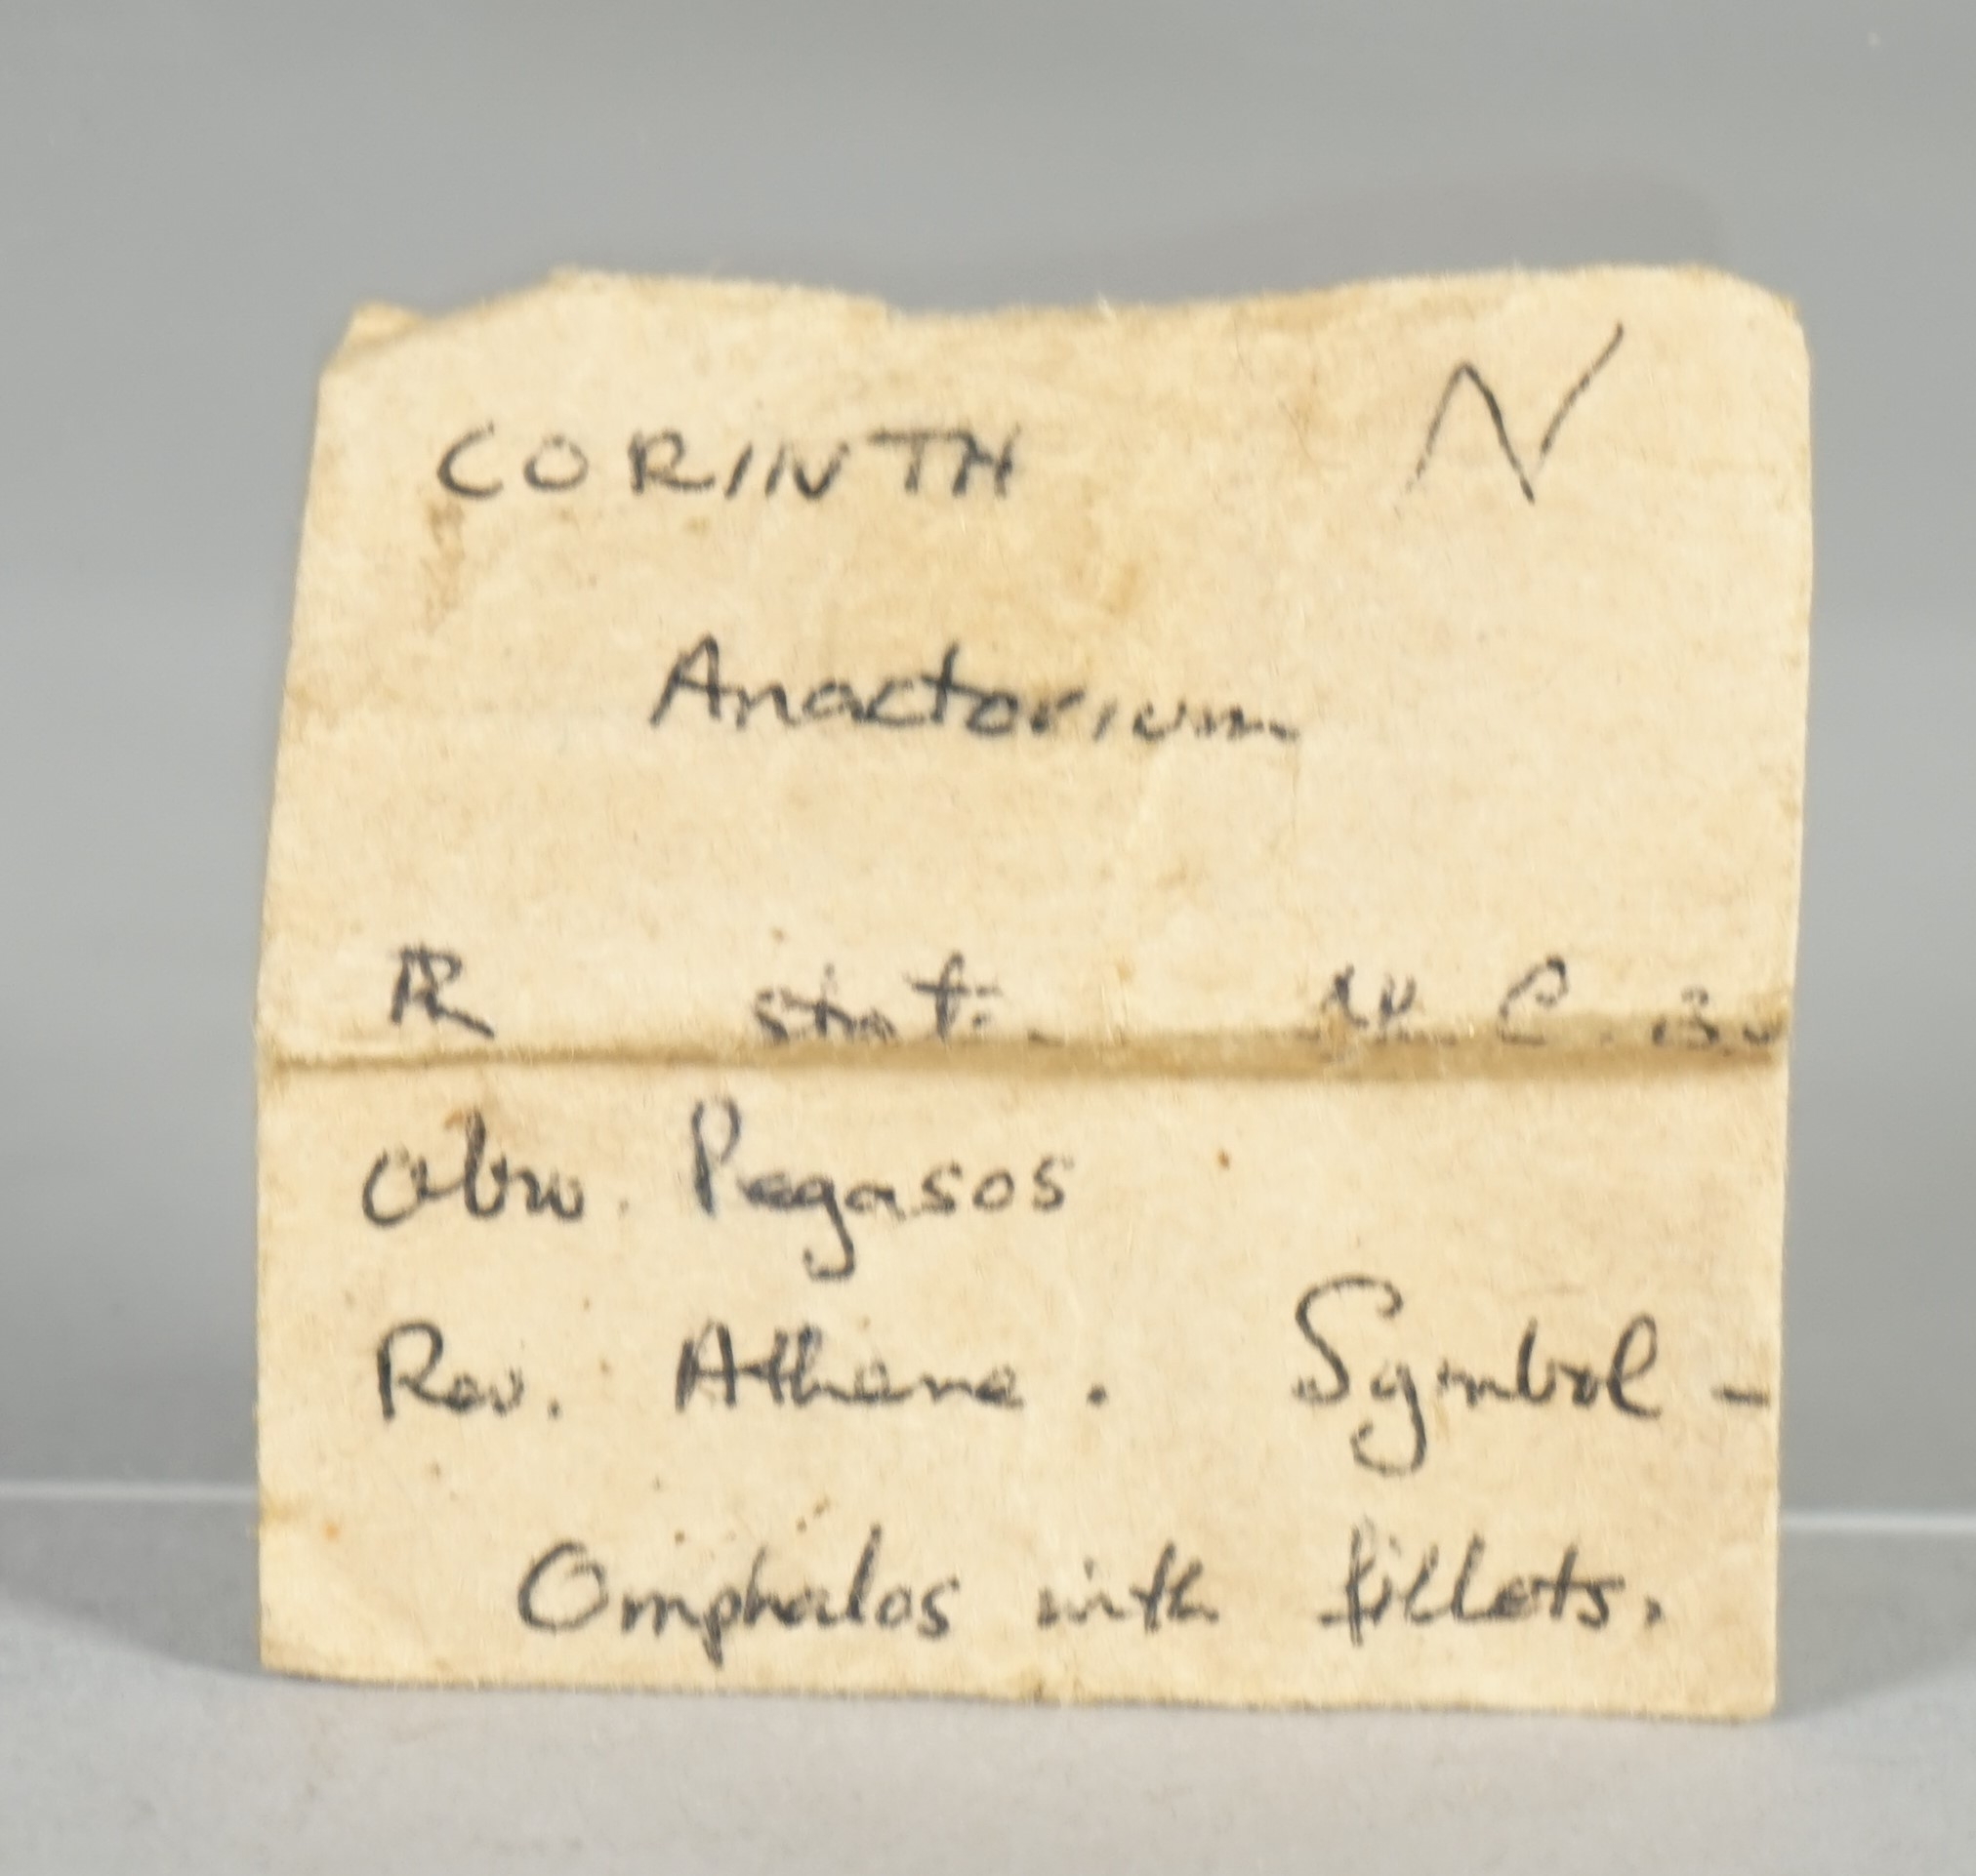 CORINTH N
Anactorium
Æ stat.
Obv. Pegasos
Rev. Athene. Symbol -
Omphalos with fillets.